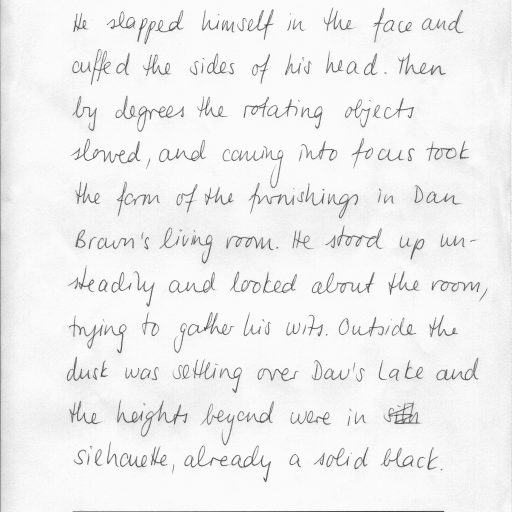 He slapped himself in the face and
cuffed the sides of his head. Then
by degrees the rotating objects
slowed, and coming into focus took
the form of the furnishings in Dan
Brawn's living room. He stood up un-
steadily and looked about the room,
trying to gather his wits. Outside the
dusk was settling over Dav's Lake and
the heights beyond were in
silhouette, already a solid black.